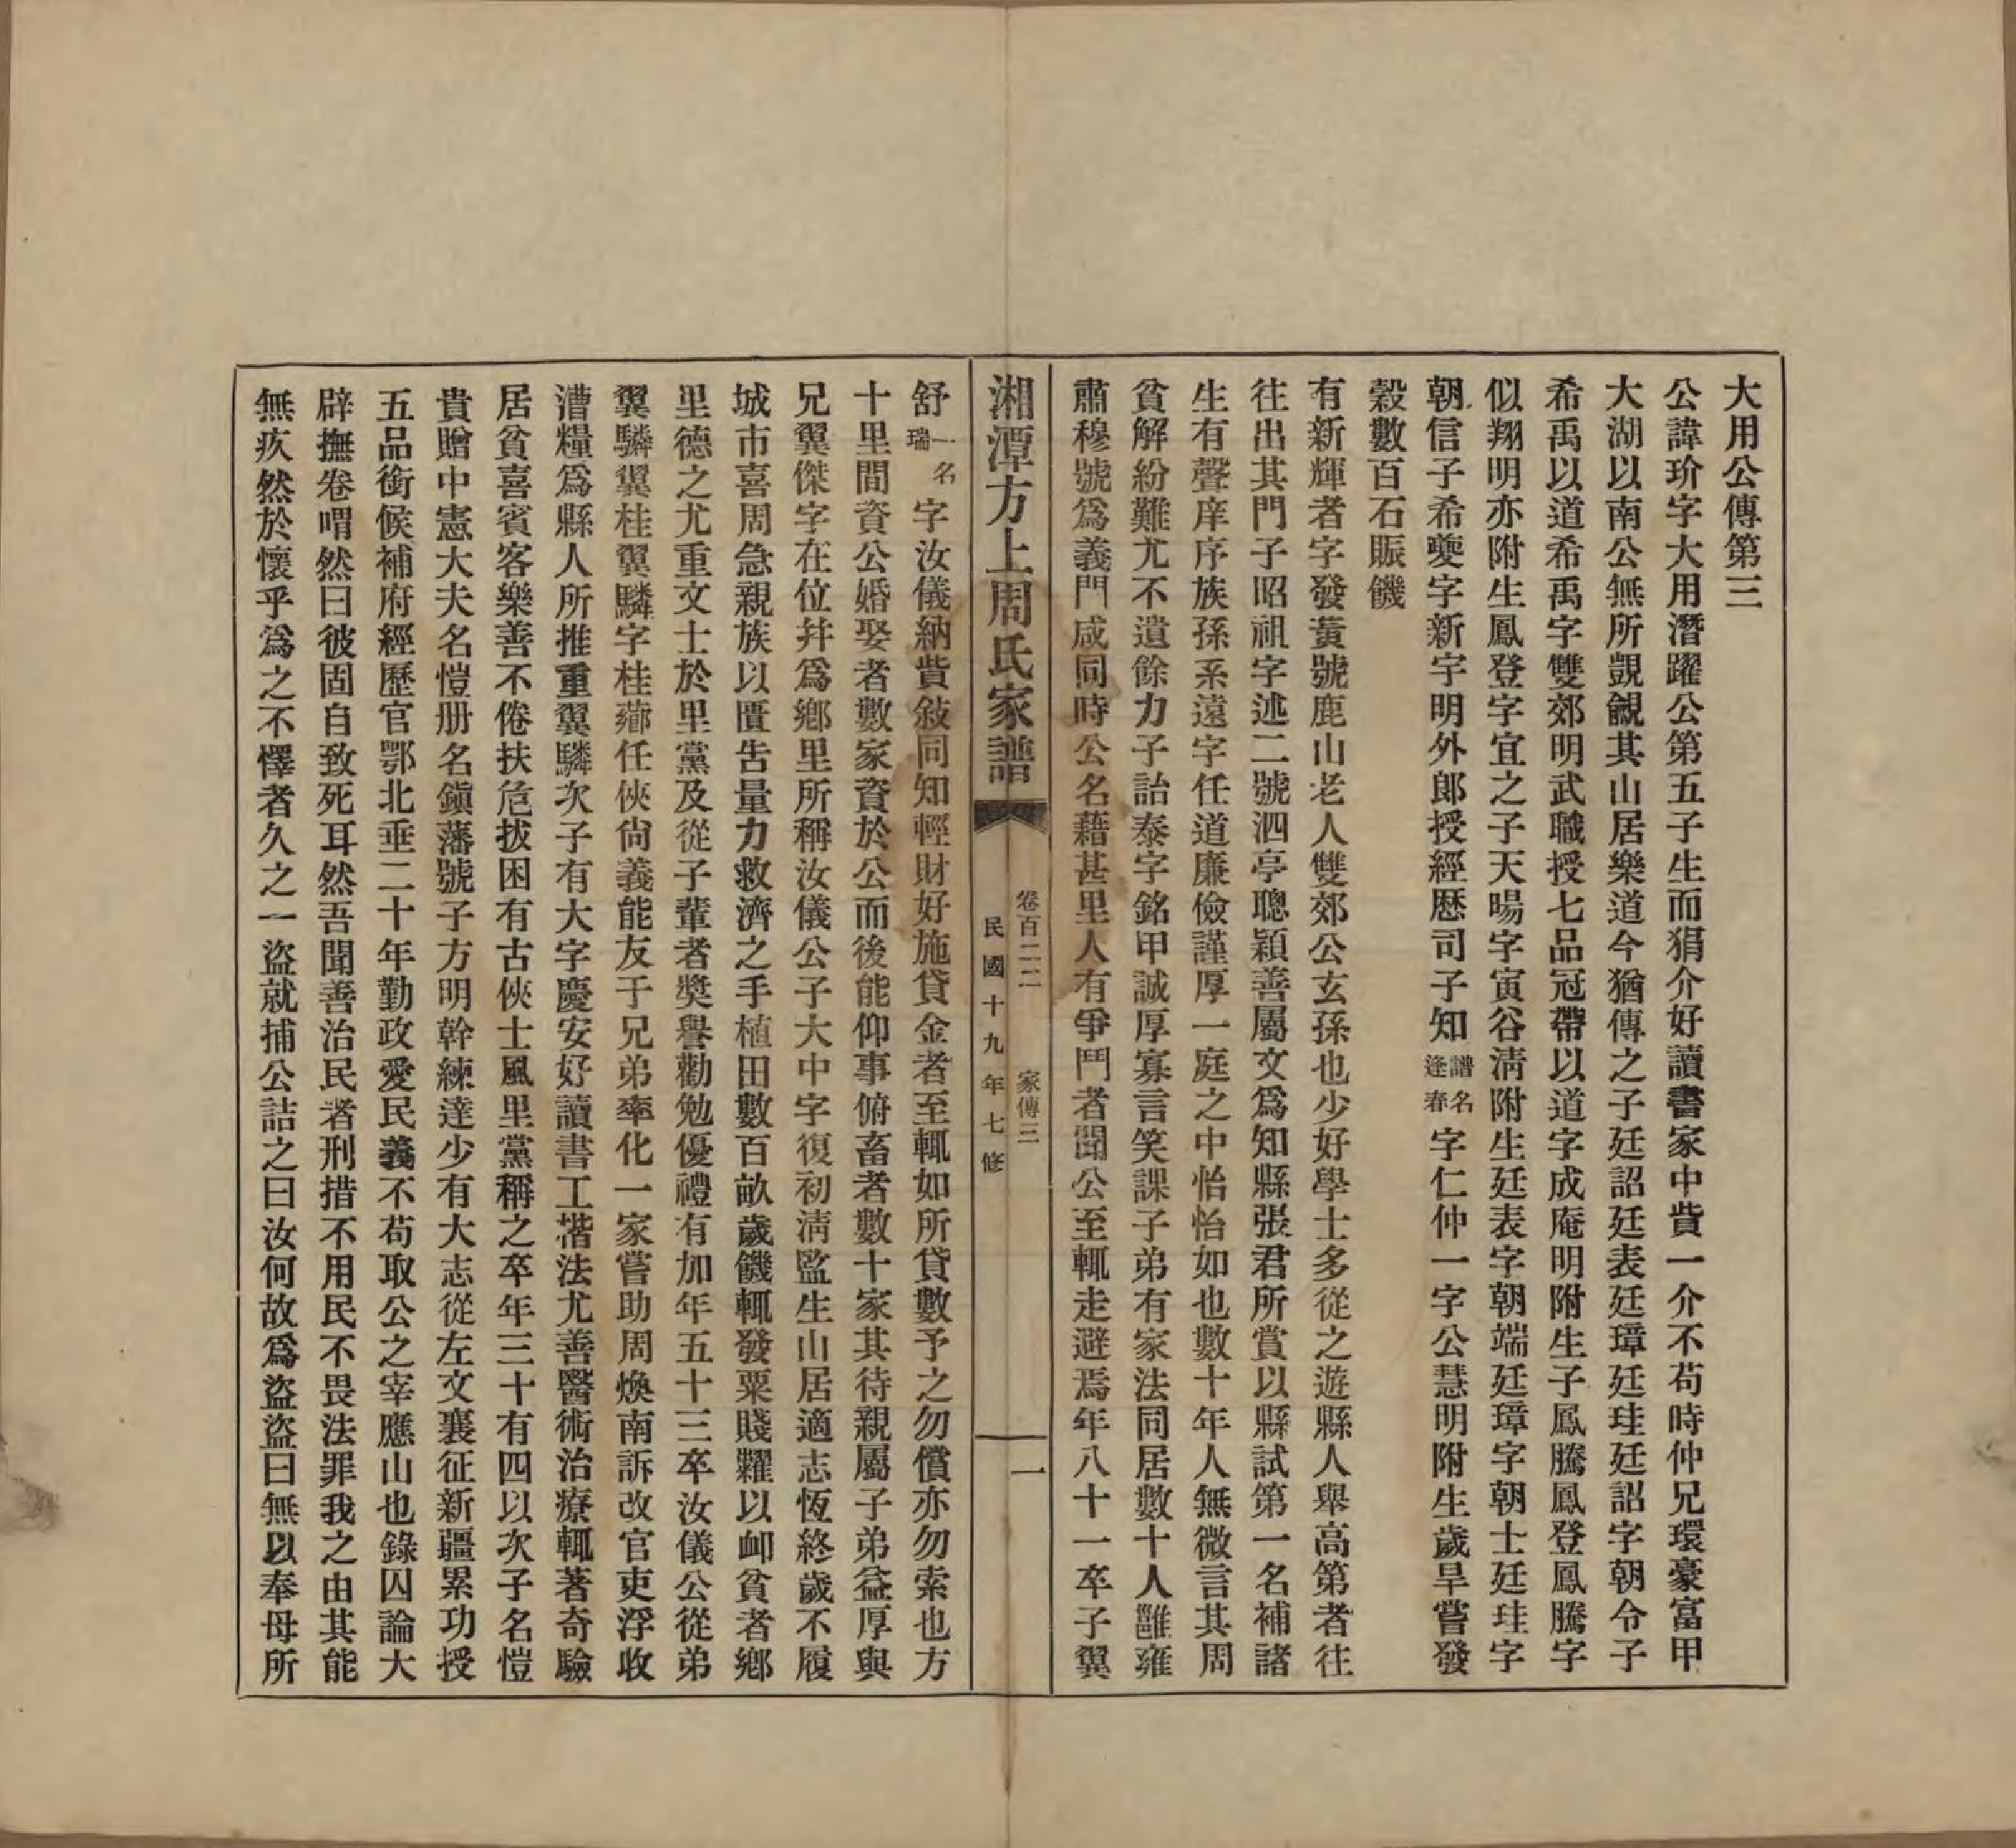 大用公傳第三
公諱玠字大用潛躍公第五子生而狷介好讀書家中貲一介不苟時仲兄環豪富甲
大湖以南公無所覬覦其山居樂道今猶傳之子廷詔廷表廷璋廷珪廷詔字朝令子
希禹以道希禹字雙郊明武職授七品冠帶以道字成庵明附生子鳳騰鳳登鳳騰字
似翔明亦附生鳳登字宜之子天暘字寅谷清附生廷表字朝端廷璋字朝士廷珪字
朝信子希夔字新宇明外郎授經歷司子知譜名逢春字仁仲一字公慧明附生歲旱嘗發
穀數百石賑饑
有新輝者字發黃號鹿山老人雙郊公玄孫也少好學士多從之遊縣人舉高第者往
往出其門子昭祖字述二號泗亭聰穎善屬文爲知縣張君所賞以縣試第一名補諸
生有聲庠序族孫系遠字任道廉儉謹厚一庭之中怡怡如也數十年人無微言其周
貧解紛難尤不遺餘力子詒泰字銘甲誠厚寡言笑課子弟有家法同居數十人雝雍
肅穆號爲義門咸同時公名藉甚里人有爭鬥者聞公至輒走避焉年八十一卒子翼
湘潭方上周氏家譜
卷百二二　家傳三
民國十九年七修
一
舒一名瑞字汝儀納貲敍同知輕財好施貸金者至輒如所貸數予之勿償亦勿索也方
十里間資公婚娶者數家資於公而後能仰事俯畜者數十家其待親屬子弟益厚與
兄翼傑字在位幷爲鄉里所稱汝儀公子大中字復初淸監生山居適志恆終歲不履
城市喜周急親族以匱吿量力救濟之手植田數百畝歲饑輒發粟賤糶以卹貧者鄉
里德之尤重文士於里黨及從子輩者奬譽勸勉優禮有加年五十三卒汝儀公從弟
翼驎翼桂翼驎字桂薌任俠尙義能友于兄弟率化一家嘗助周煥南訴改官吏浮收
漕糧爲縣人所推重翼驎次子有大字慶安好讀書工楷法尤善醫術治療輒著奇驗
居貧喜賓客樂善不倦扶危拔困有古俠士風里黨稱之卒年三十有四以次子名愷
貴贈中憲大夫名愷册名鎭藩號子方明幹練達少有大志從左文襄征新疆累功授
五品銜候補府經歷官鄂北垂二十年勤政愛民義不苟取公之宰應山也錄囚論大
辟撫卷喟然曰彼固自致死耳然吾聞善治民者刑措不用民不畏法罪我之由其能
無疚然於懷乎爲之不懌者久之一盜就捕公詰之曰汝何故爲盜盜曰無以奉母所